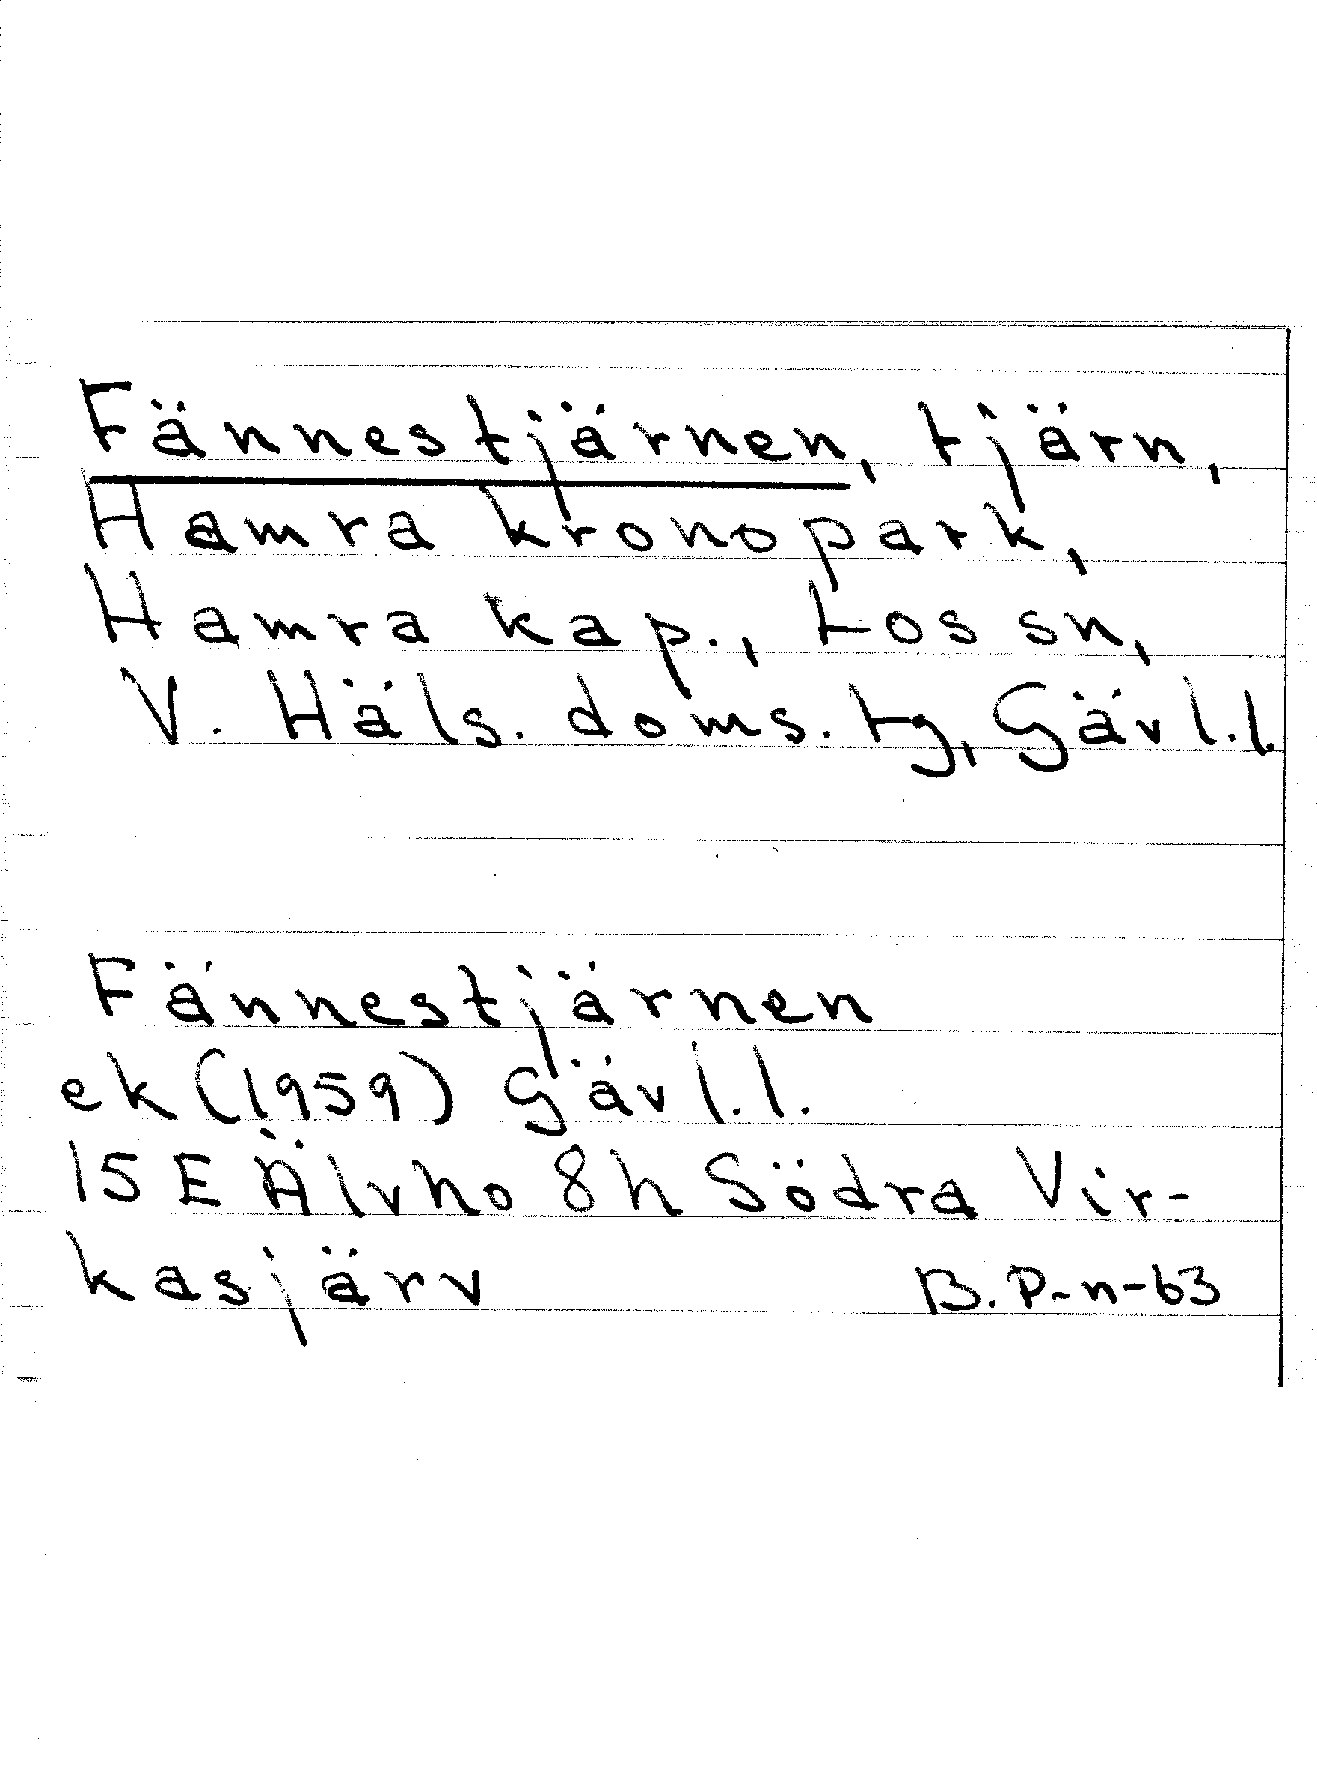 Fännestjärnen, tjärn,
Hamra kronopark,
Hamra kap., Los sn,
V. Häls. doms. tg, Gävl.l.
Fännestjärnen
ek (1959) Gävl.l.
15 E Älvho 8h Södra Vir-
kasjärv B. P-n-63